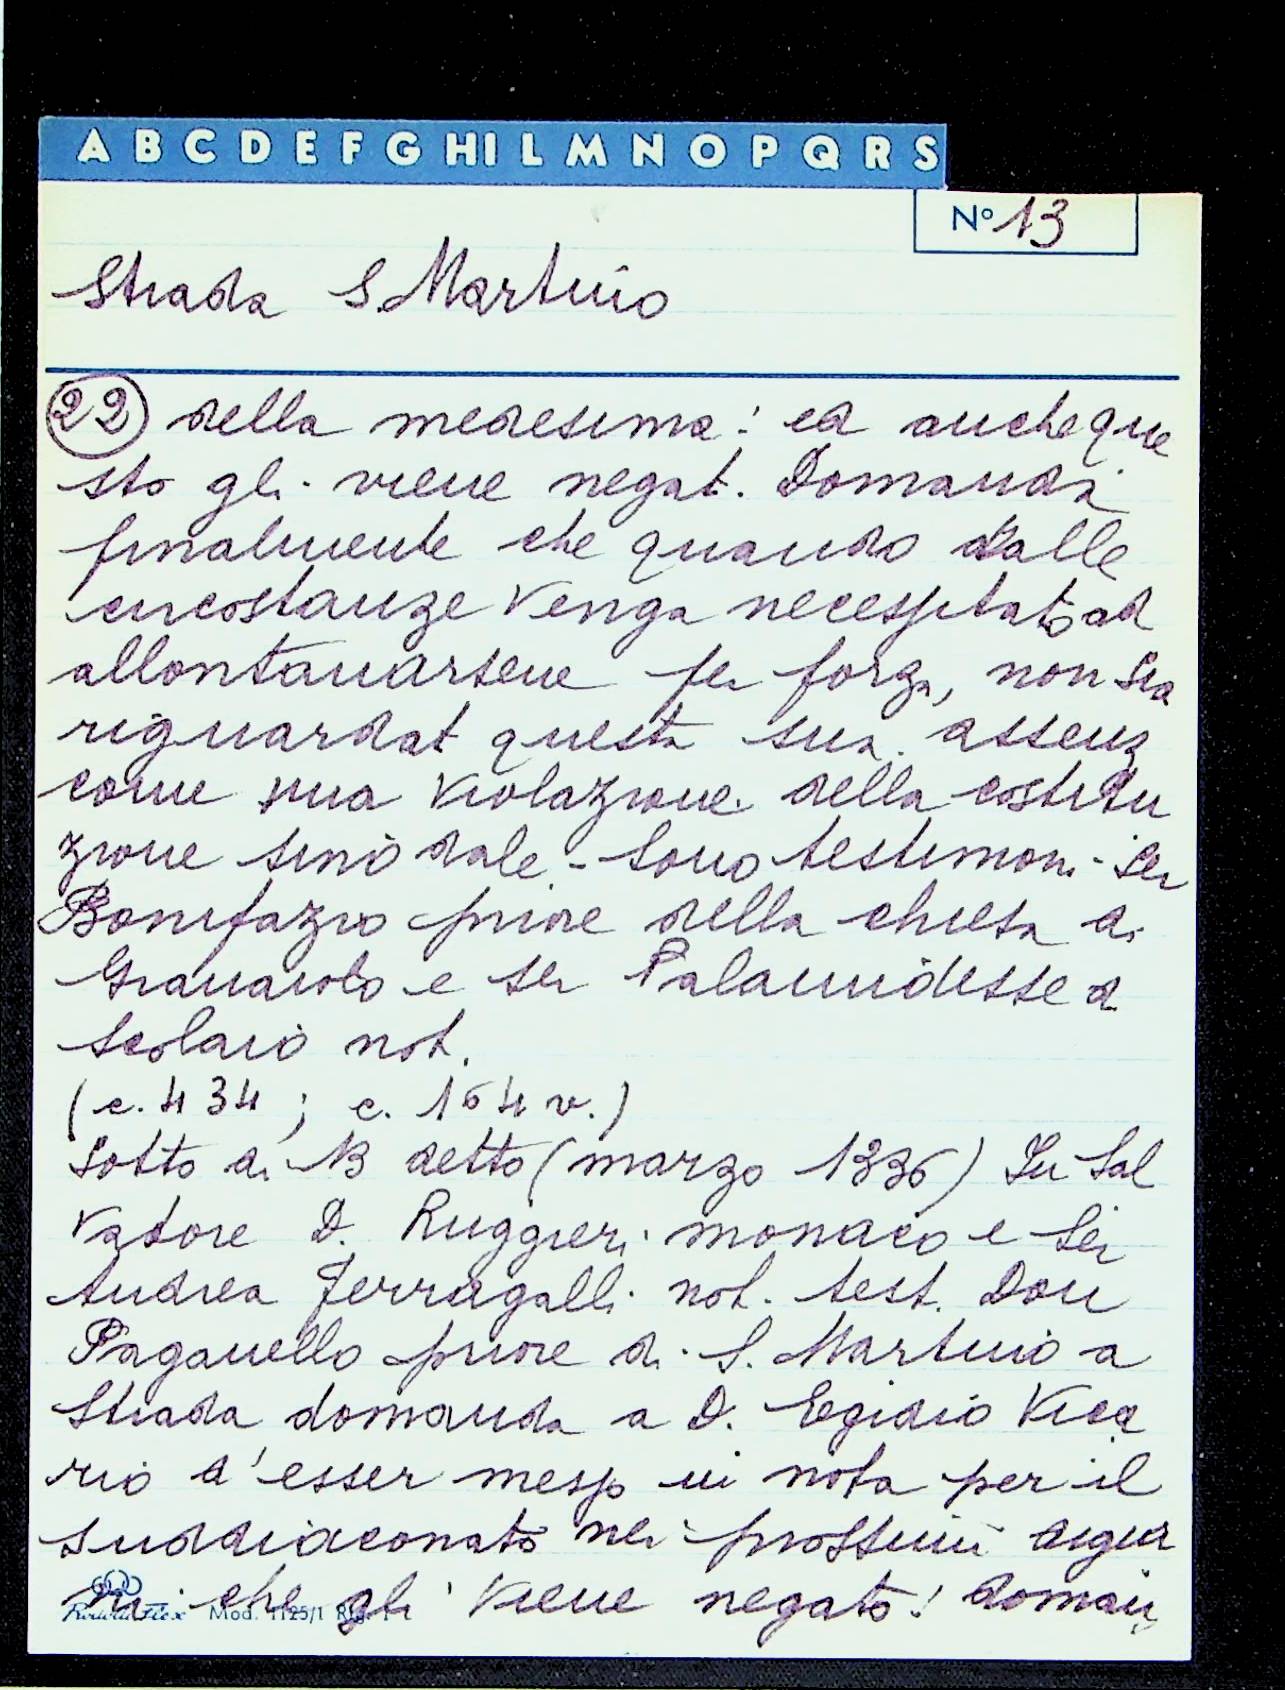 A B C D E F G H I L M N O P Q R S
N° 13
Strada S. Martino
22 della medesima: ed anche que
sto gli viene negat. Domanda
finalmente che quando dalle
circostanze venga necessitato ad
allontanarsene per forza, non sia
riguardat questa sua assenz
come una violazione della costitu
zione sinodale - Sono testimoni - Ser
Bonifazio priore della chiesa di
Granaiolo e ser Palamidesse d
Scolaio not.
(c. 434; c. 164 v.)
Sotto di 13 detto (marzo 1336) In Sal
vadore D. Ruggieri monaco e Ser
Andrea Ferragalli not. test. Don
Paganello priore di S. Martino a
Strada domanda a D. Egidio Vica
rio d'esser messo in nota per il
suddiaconato nei prossimi digiu
ni che gli viene negato! doman
Mod. 1125/1